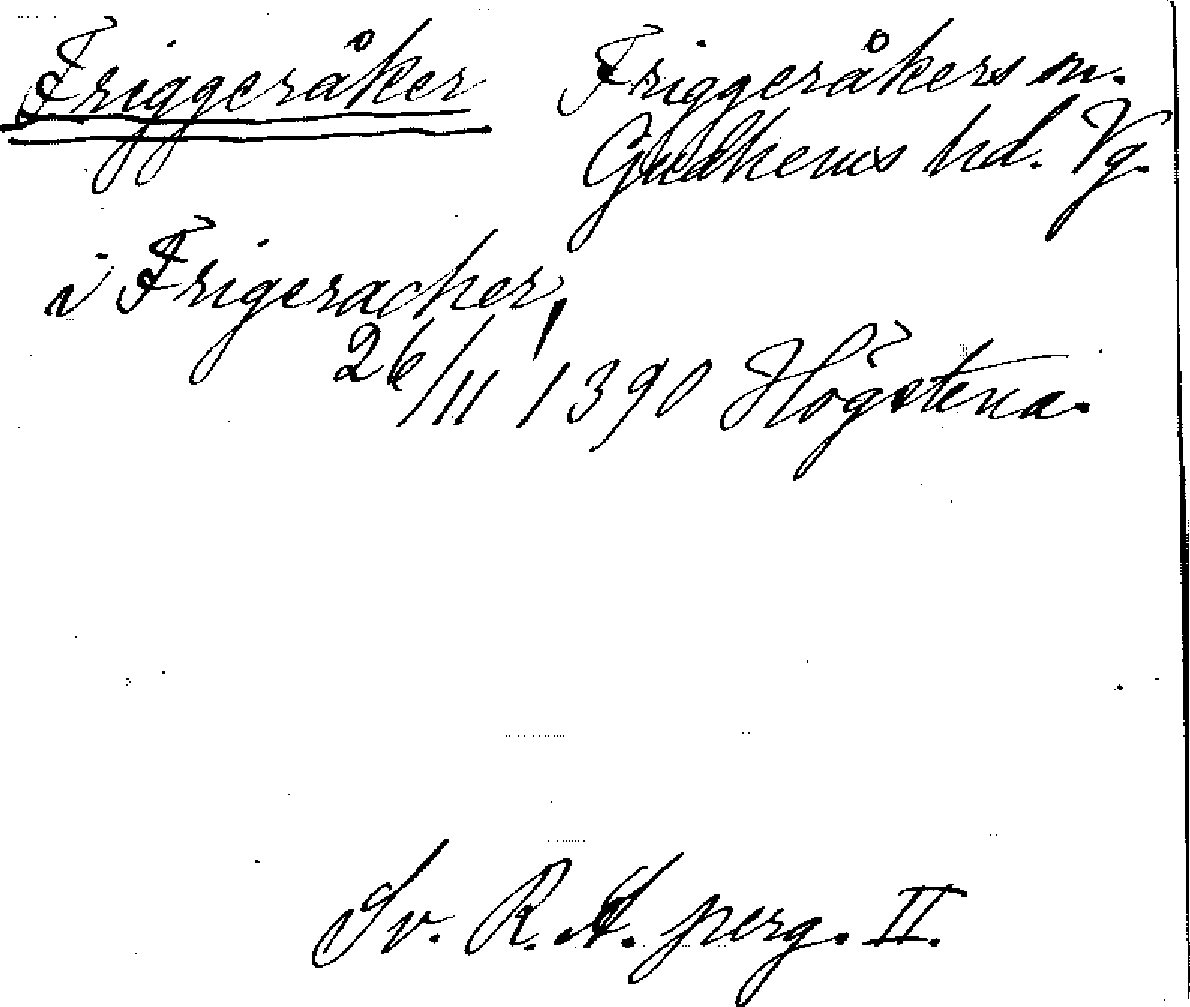 Friggeråker Friggeråkers sn.
Gudhems hd. Vg.
i Frigeracker,
26/11 1390 Högstena.
Sv. R. A. perg. II.